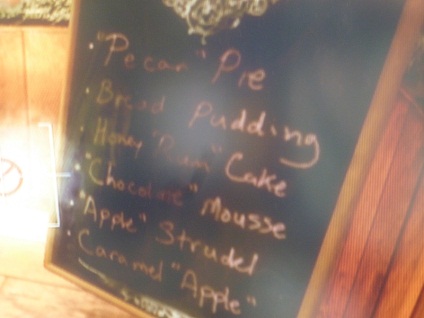 "Pecan" Pie
Bread Pudding
Honey Cake
"Chocolate" Mousse
"Apple" Strudel
Caramel "Apple"